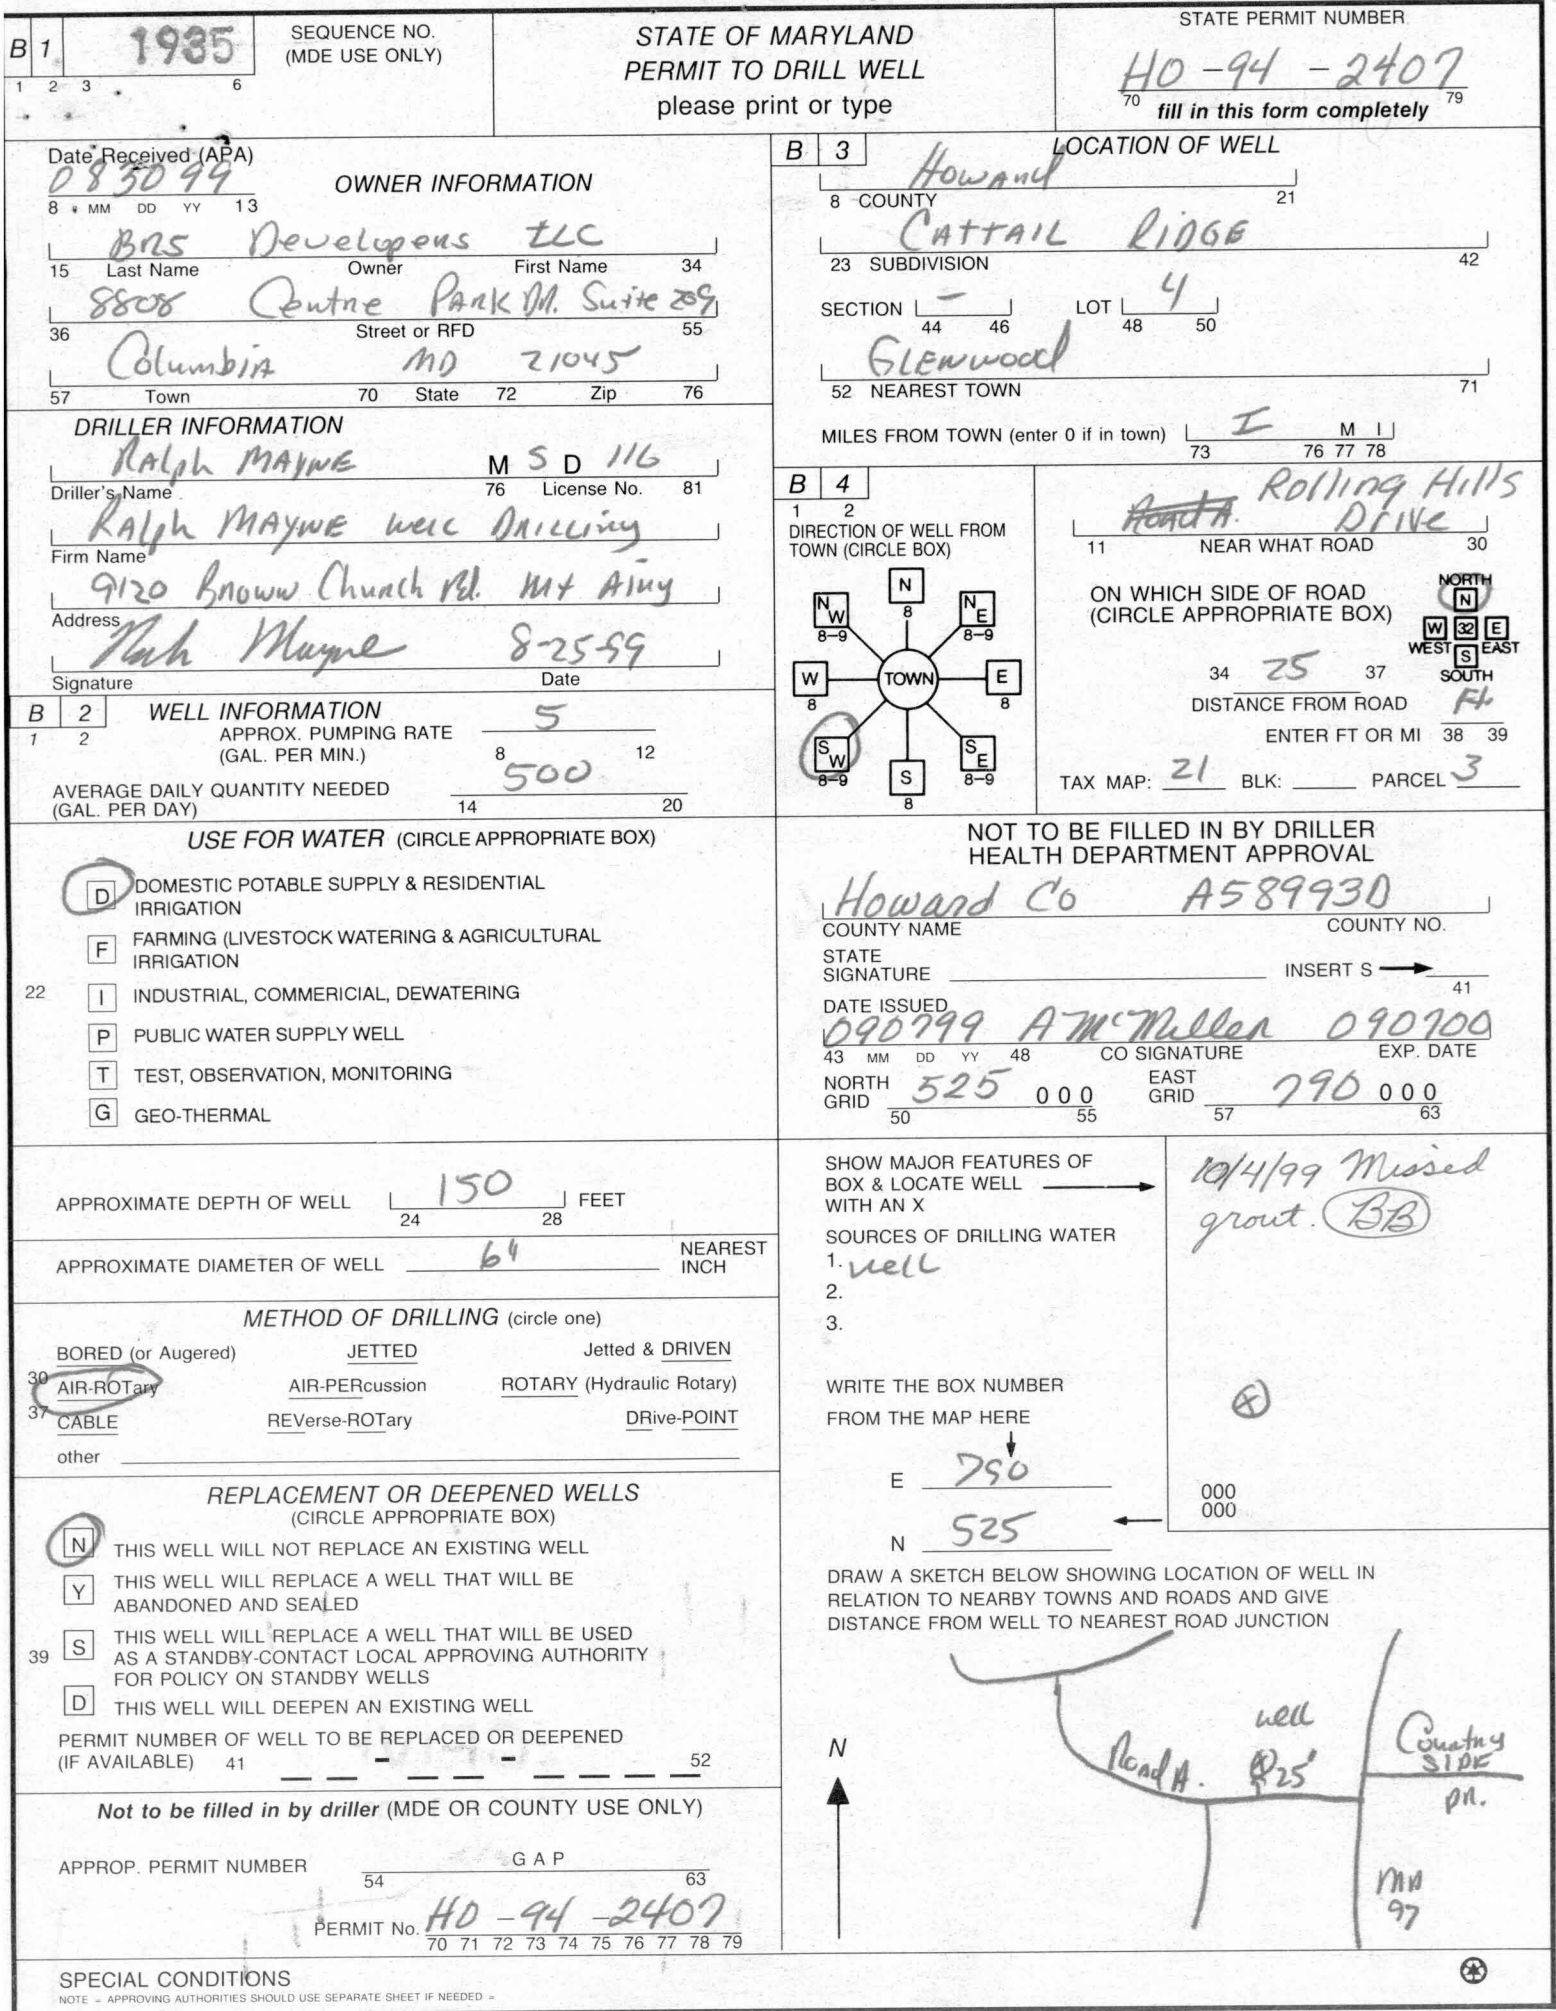 B 1
1 2 3 6
1935
SEQUENCE NO.
(MDE USE ONLY)
STATE OF MARYLAND
PERMIT TO DRILL WELL
please print or type
STATE PERMIT NUMBER
HO-94-2407
70 fill in this form completely 79
Date Received (APA)
083099
8 MM DD YY 13
OWNER INFORMATION
BRS Developers LLC
15 Last Name Owner First Name 34
8808 Centre PARK DR. Suite 209
36 Street or RFD 55
Columbia MD 21045
57 Town 70 State 72 Zip 76
DRILLER INFORMATION
RALph MAYNE M S D 116
Driller's Name 76 License No. 81
RALph MAYNE well DRILLing
Firm Name
9120 Brown Church Rd. Mt Airy
Address
Ralph Mayne 8-25-99
Signature Date
B 2 WELL INFORMATION
1 2
APPROX. PUMPING RATE
(GAL. PER MIN.) 5
8 12
AVERAGE DAILY QUANTITY NEEDED
(GAL. PER DAY) 500
14 20
USE FOR WATER (CIRCLE APPROPRIATE BOX)
22
D DOMESTIC POTABLE SUPPLY & RESIDENTIAL
IRRIGATION
F FARMING (LIVESTOCK WATERING & AGRICULTURAL
IRRIGATION
I INDUSTRIAL, COMMERICIAL, DEWATERING
P PUBLIC WATER SUPPLY WELL
T TEST, OBSERVATION, MONITORING
G GEO-THERMAL
APPROXIMATE DEPTH OF WELL 150 FEET
24 28
APPROXIMATE DIAMETER OF WELL 6" NEAREST
INCH
METHOD OF DRILLING (circle one)
BORED (or Augered) JETTED Jetted & DRIVEN
30 AIR-ROTary AIR-PERcussion ROTARY (Hydraulic Rotary)
37 CABLE REVerse-ROTary DRive-POINT
other
REPLACEMENT OR DEEPENED WELLS
(CIRCLE APPROPRIATE BOX)
N THIS WELL WILL NOT REPLACE AN EXISTING WELL
Y THIS WELL WILL REPLACE A WELL THAT WILL BE
ABANDONED AND SEALED
39 S THIS WELL WILL REPLACE A WELL THAT WILL BE USED
AS A STANDBY-CONTACT LOCAL APPROVING AUTHORITY
FOR POLICY ON STANDBY WELLS
D THIS WELL WILL DEEPEN AN EXISTING WELL
PERMIT NUMBER OF WELL TO BE REPLACED OR DEEPENED
(IF AVAILABLE) 41 - - 52
Not to be filled in by driller (MDE OR COUNTY USE ONLY)
APPROP. PERMIT NUMBER G A P
54 63
PERMIT No. HO-94-2407
70 71 72 73 74 75 76 77 78 79
B 3 LOCATION OF WELL
Howard
8 COUNTY 21
CATTAIL RIDGE
23 SUBDIVISION 42
SECTION - LOT 4
44 46 48 50
GLENWOOD
52 NEAREST TOWN 71
MILES FROM TOWN (enter 0 if in town) I M I
73 76 77 78
B 4
1 2
DIRECTION OF WELL FROM
TOWN (CIRCLE BOX)
N
8
NW
8-9
NE
8-9
W
8
TOWN
E
8
SW
8-9
S
8
SE
8-9
Road A. Rolling Hills
Drive
11 NEAR WHAT ROAD 30
ON WHICH SIDE OF ROAD
(CIRCLE APPROPRIATE BOX)
NORTH
N
W 32 E
WEST EAST
S
SOUTH
34 25 37
DISTANCE FROM ROAD
Ft.
ENTER FT OR MI 38 39
TAX MAP: 21 BLK: PARCEL 3
NOT TO BE FILLED IN BY DRILLER
HEALTH DEPARTMENT APPROVAL
Howard Co A58993D
COUNTY NAME COUNTY NO.
STATE
SIGNATURE INSERT S
41
DATE ISSUED
090799 A McMiller 090700
43 MM DD YY 48 CO SIGNATURE EXP. DATE
NORTH
GRID 525 000
50 55
EAST
GRID 790 000
57 63
SHOW MAJOR FEATURES OF
BOX & LOCATE WELL
WITH AN X
SOURCES OF DRILLING WATER
1. well
2.
3.
10/4/99 Missed
grout. BB
WRITE THE BOX NUMBER
FROM THE MAP HERE
X
E 790
N 525
000
000
DRAW A SKETCH BELOW SHOWING LOCATION OF WELL IN
RELATION TO NEARBY TOWNS AND ROADS AND GIVE
DISTANCE FROM WELL TO NEAREST ROAD JUNCTION
N
well
Road A. 25'
Country
SIDE
DR.
MD
97
SPECIAL CONDITIONS
NOTE = APPROVING AUTHORITIES SHOULD USE SEPARATE SHEET IF NEEDED =